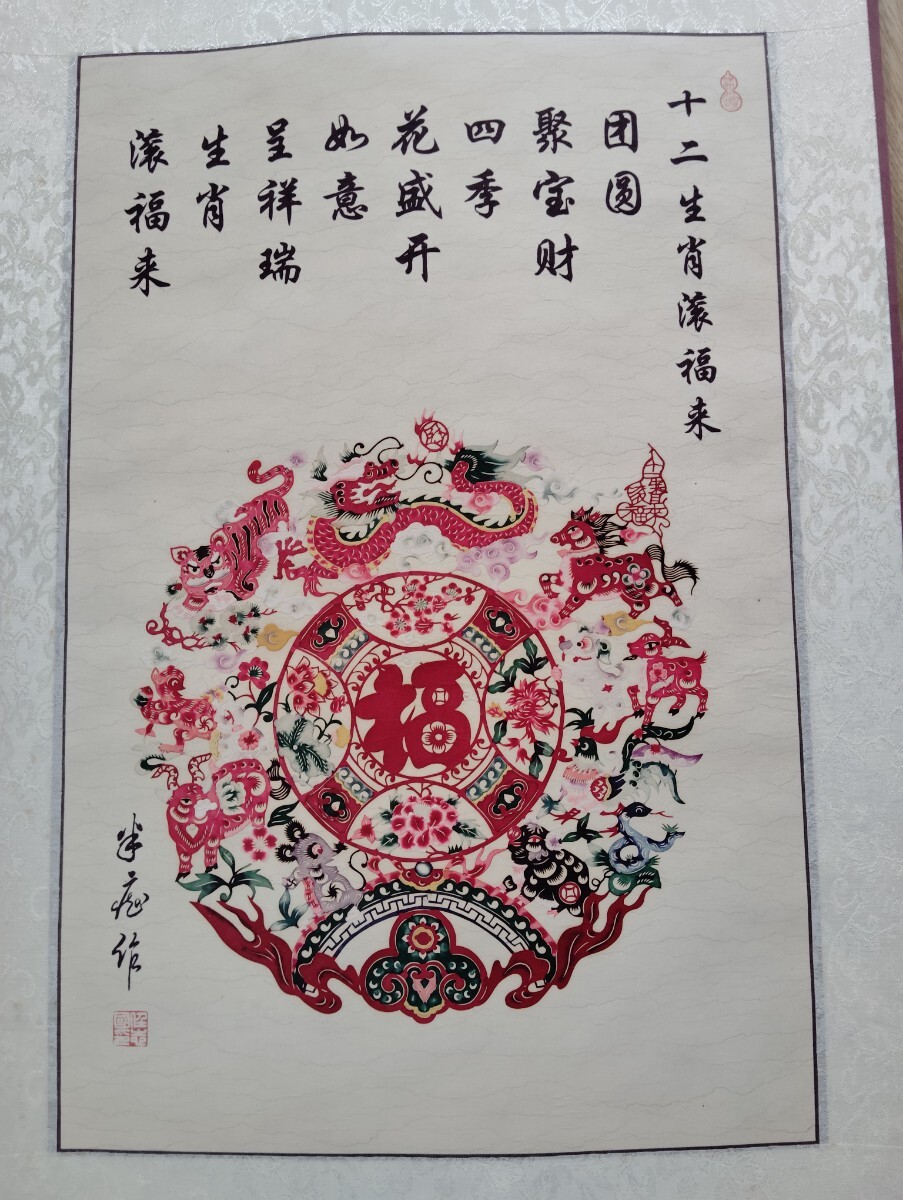 十二生肖滚福来
团圆
聚宝财
四季
花盛开
如意
呈祥瑞
生肖
滚福来
福
作